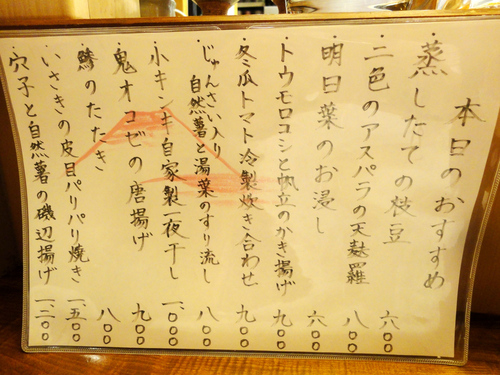 本日のおすすめ
・蒸したての枝豆 六〇〇
・二色のアスパラの天麩羅 八〇〇
・明日葉のお浸し 六〇〇
・トウモロコシと帆立のかき揚げ 九〇〇
・冬瓜トマト冷製炊き合わせ 九〇〇
・じゅんさい入り
自然薯と湯葉のすり流し 八〇〇
・小キンキ自家製一夜干し 一、〇〇〇
・鬼オコゼの唐揚げ 九〇〇
・鯵のたたき 八〇〇
・いさきの皮目パリパリ焼き 一、五〇〇
・穴子と自然薯の磯辺揚げ 一、二〇〇